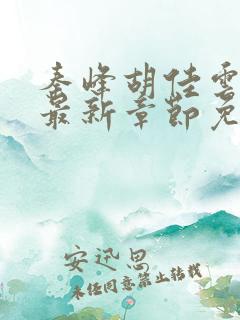 秦峰胡佳雲
最新章節免
安迅思
未经同意禁止转载